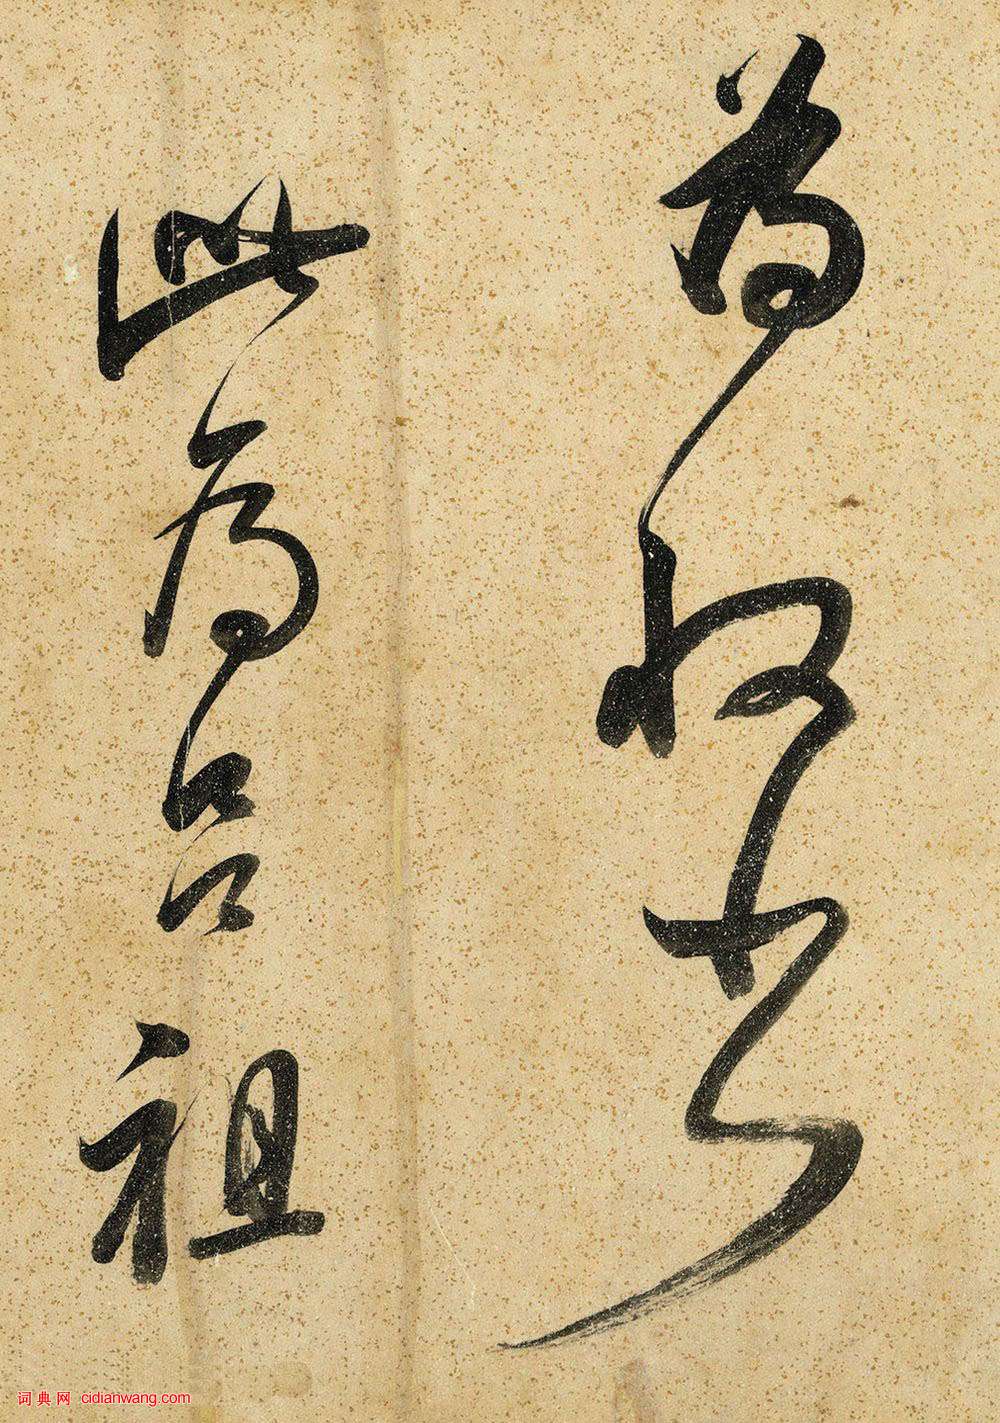 為
此為吕祖
词典网 cidianwang.com